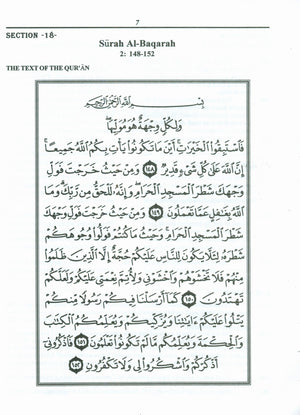 7
SECTION -18-
Sūrah Al-Baqarah
2: 148-152
THE TEXT OF THE QUR'ĀN
بِسْمِ اللَّهِ الرَّحْمَٰنِ الرَّحِيمِ
وَلِكُلٍّ وِجْهَةٌ هُوَ مُوَلِّيهَا
فَاسْتَبِقُوا الْخَيْرَاتِ أَيْنَ مَا تَكُونُوا يَأْتِ بِكُمُ اللَّهُ جَمِيعًا
إِنَّ اللَّهَ عَلَىٰ كُلِّ شَيْءٍ قَدِيرٌ ١٤٨ وَمِنْ حَيْثُ خَرَجْتَ فَوَلِّ
وَجْهَكَ شَطْرَ الْمَسْجِدِ الْحَرَامِ وَإِنَّهُ لَلْحَقُّ مِن رَّبِّكَ وَمَا
اللَّهُ بِغَافِلٍ عَمَّا تَعْمَلُونَ ١٤٩ وَمِنْ حَيْثُ خَرَجْتَ فَوَلِّ وَجْهَكَ
شَطْرَ الْمَسْجِدِ الْحَرَامِ وَحَيْثُ مَا كُنتُمْ فَوَلُّوا وُجُوهَكُمْ
شَطْرَهُ لِئَلَّا يَكُونَ لِلنَّاسِ عَلَيْكُمْ حُجَّةٌ إِلَّا الَّذِينَ ظَلَمُوا
مِنْهُمْ فَلَا تَخْشَوْهُمْ وَاخْشَوْنِي وَلِأُتِمَّ نِعْمَتِي عَلَيْكُمْ وَلَعَلَّكُمْ
تَهْتَدُونَ ١٥٠ كَمَا أَرْسَلْنَا فِيكُمْ رَسُولًا مِّنكُمْ
يَتْلُوا عَلَيْكُمْ آيَاتِنَا وَيُزَكِّيكُمْ وَيُعَلِّمُكُمُ الْكِتَابَ
وَالْحِكْمَةَ وَيُعَلِّمُكُم مَّا لَمْ تَكُونُوا تَعْلَمُونَ ١٥١ فَاذْكُرُونِي
أَذْكُرْكُمْ وَاشْكُرُوا لِي وَلَا تَكْفُرُونِ ١٥٢